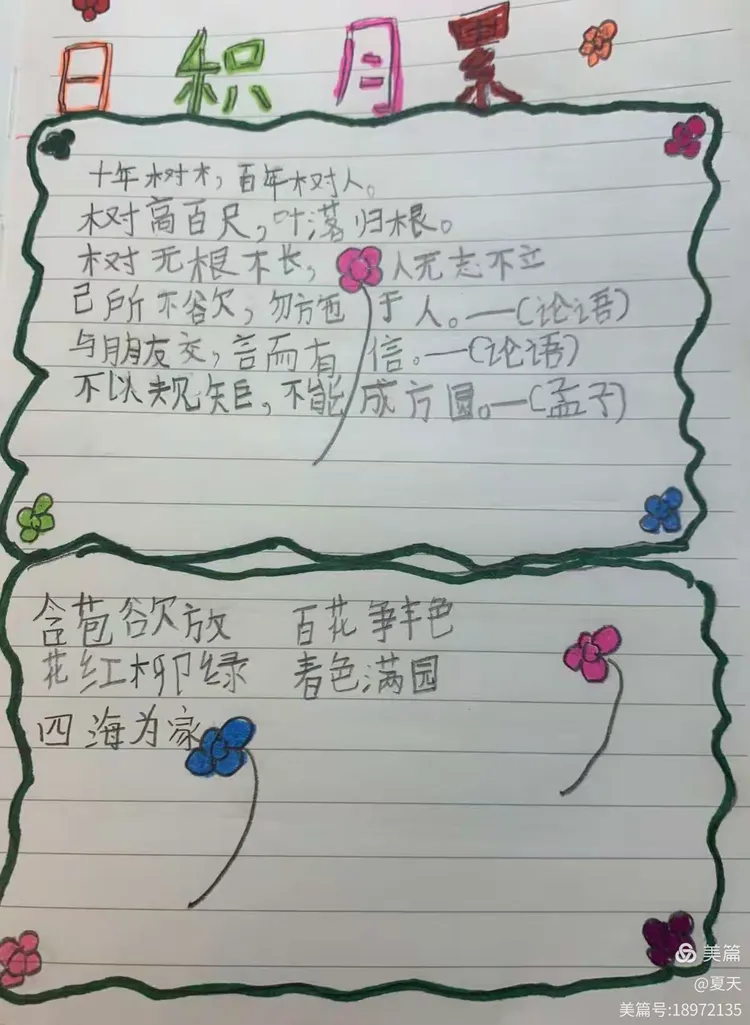 日积月累
十年树木，百年树人。
树高百尺，叶落归根。
树无根不长，人无志不立
己所不欲，勿施于人。—(论语)
与朋友交，言而有信。—(论语)
不以规矩，不能成方圆。—(孟子)
含苞欲放 百花争艳
花红柳绿 春色满园
四海为家
美篇
@夏天
美篇号:18972135